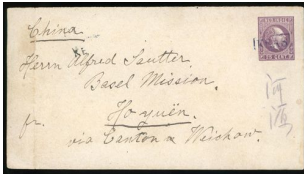 China
Herrn Alfred Sautter
Basel Mission
Ho yuën
fr.
via Canton & Weichow.
河源